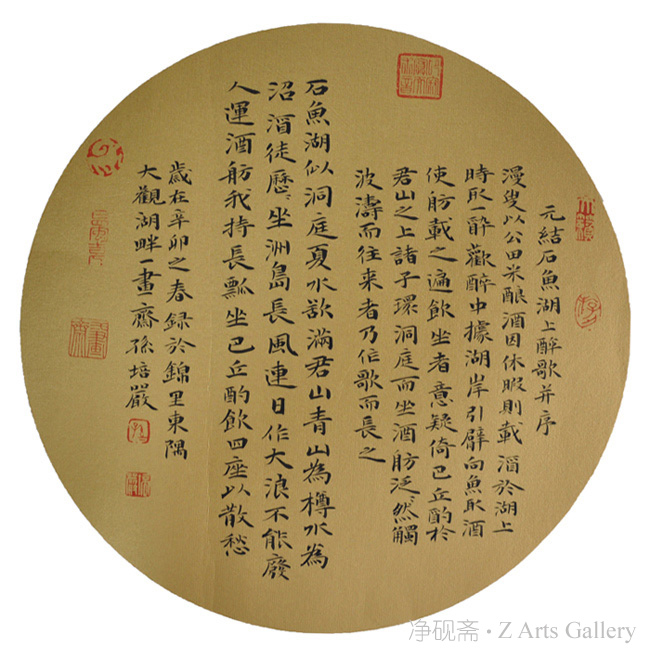 元結石魚湖上醉歌并序
漫叟以公田米釀酒因休暇則載酒於湖上
時取一醉歡醉中據湖岸引臂向魚取酒
使舫載之遍飲坐者意疑倚巴丘酌於
君山之上諸子環洞庭而坐酒舫泛然觸
波濤而往来者乃信歌而長之
石魚湖似洞庭夏水欲滿君山青山為樽水為
沼酒徒歷〻坐洲島長風連日作大浪不能廢
人運酒舫我持長瓢坐巴丘酌飲四座以散愁
歲在辛卯之春録於錦里東隅
大觀湖畔一畫齋孫培嚴
净砚斋·Z Arts Gallery